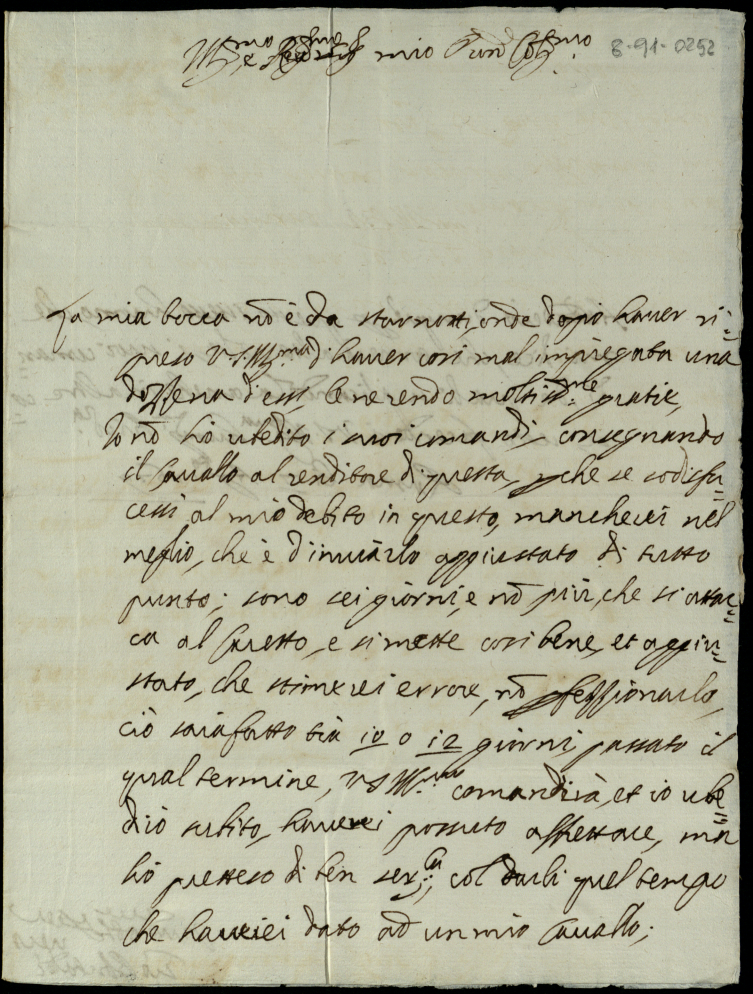 Ill.mo e mio Pad.n Col.mo 8-91-0252
La mia bocca nō è da starnotti, onde doppo hauer ri=
preso V.S. Ill.ma d'hauer cosi mal impiegata una
dozzena d'essi, le ne rendo moltiss.me gratie,
Io nō hò ubedito i suoi comandi, consegnando
il Cauallo al renditore di questa, perche se sodisfa=
cessi al mio debito in questo, mancherei nel
meglio, che è d'inuiarlo aggiustato di tutto
punto; sono sei giorni, e nō più, che si attac=
ca al Calesso, e si mette cosi bene, et aggiu=
stato, che stimerei errore, nō perfettionarlo,
ciò sarà fatto trà 10 o 12 giorni, passato il
qual termine, VS Ill.ma comanderà, et io ube=
dirò subito, hauerei possuto affrettare, ma
hò preteso di ben ser.la, col darli quel tempo
che hauerei dato ad un mio Cauallo;